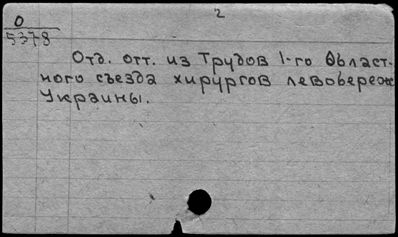 2
О
5378
Отд. отт. из Трудов 1-го Област-
ного съезда хирургов левобереж
Украины.